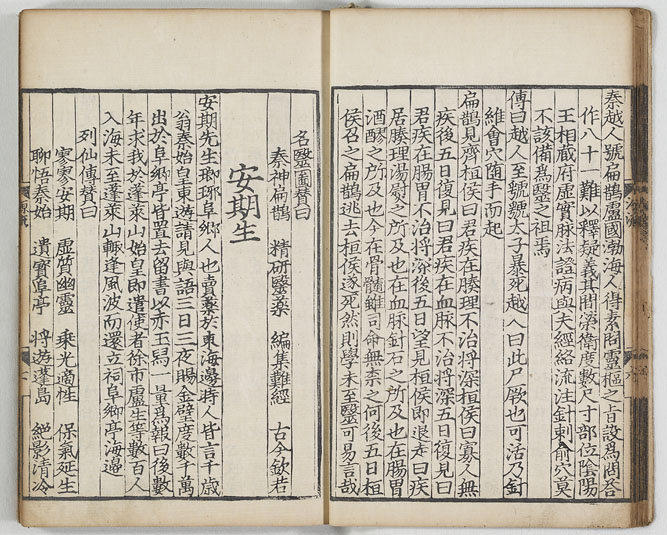 秦越人號扁鵲盧國渤海人得素問靈樞之占設爲問荅
作八十一難以釋疑義其間榮衛度數尺寸部位陰陽
王相藏府虛實脉法證病與夫經絡流注針刺俞穴莫
不該備爲醫之祖焉
傳曰越人至虢虢太子暴死越人曰此尸厥也可活乃針
維會穴隨手而起
扁鵲見齊桓侯曰君疾在腠理不治將深桓侯曰寡人無
疾後五日復見曰君疾在血脉不治將深五日復見曰
君疾在腸胃不治將深後五日望見桓侯即退走曰疾
居腠理湯熨之所及也在血脉針石之所及也在腸胃
酒醪之所及也今在骨髓雖司命無柰之何後五日桓
侯召之扁鵲逃去桓侯遂死然則學未至醫可易言哉
名醫圖賛曰
秦神扁鵲 精研醫藥 編集難經 古今欽若
安期生
安期先生瑯琊阜鄉人也賣藥於東海邊時人皆言千歲
翁秦始皇東遊請見與語三日三夜賜金璧度數千萬
出於阜鄉亭皆置去留書以赤玉舄一量爲報曰後數
年求我於蓬萊山始皇即遣使者徐市盧生等數百人
入海未至蓬萊山輒逢風波而還立祠阜鄉亭海邊
列仙傳賛曰
寥寥安期 虛質幽靈 乘光適性 保氣延生
聊悟秦始 遺寶阜亭 將遊蓬島 絕影清冷